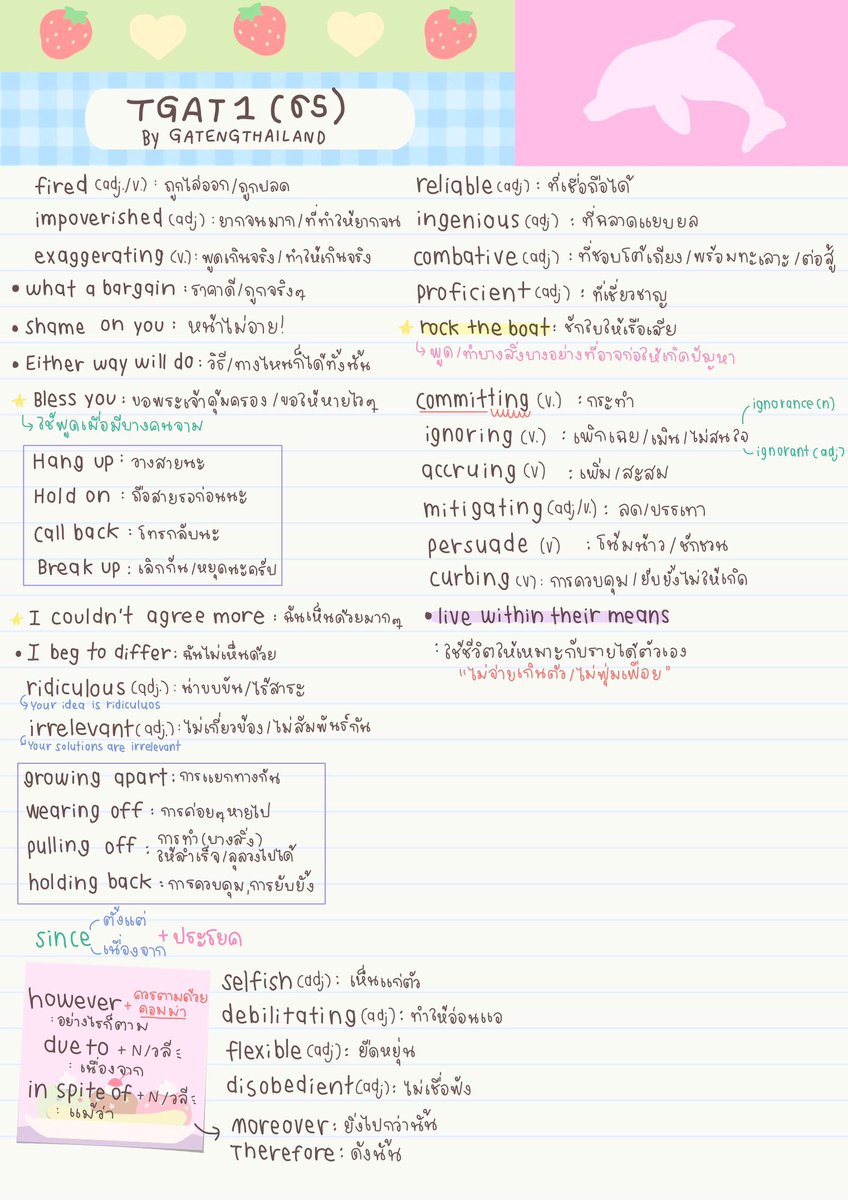 TGAT 1 (ธร)
By GATENGTHAILAND
fired (adj./v.) : ถูกไล่ออก/ถูกปลด
impoverished (adj) : ยากจนมาก/ที่ทำให้ยากจน
exaggerating (v.) : พูดเกินจริง/ทำให้เกินจริง
• what a bargain : ราคาดี/ถูกจริงๆ
• shame on you : หน้าไม่อาย!
• Either way will do : วิธี/ทางไหนก็ได้ทั้งนั้น
Bless you : ขอพระเจ้าคุ้มครอง/ขอให้หายไวๆ
ใช้พูดเมื่อมีบางคนจาม
Hang up : วางสายนะ
Hold on : ถือสายรอก่อนนะ
Call back : โทรกลับนะ
Break up : เลิกกัน/หยุดนะครับ
I couldn't agree more : ฉันเห็นด้วยมากๆ
• I beg to differ : ฉันไม่เห็นด้วย
ridiculous (adj.) : น่าขบขัน/ไร้สาระ
Your idea is ridiculuos
irrelevant (adj.) : ไม่เกี่ยวข้อง/ไม่สัมพันธ์กัน
Your solutions are irrelevant
growing apart : การแยกทางกัน
wearing off : การค่อยๆหายไป
pulling off : การทำ(บางสิ่ง)
ให้สำเร็จ/ลุล่วงไปได้
holding back : การควบคุม,การยับยั้ง
since ตั้งแต่
เนื่องจาก + ประโยค
however + ควรตามด้วย
คอมม่า
: อย่างไรก็ตาม
due to + N/วลี
: เนื่องจาก
in spite of + N/วลี
: แม้ว่า
selfish (adj) : เห็นแก่ตัว
debilitating (adj) : ทำให้อ่อนแอ
flexible (adj) : ยืดหยุ่น
disobedient (adj) : ไม่เชื่อฟัง
Moreover : ยิ่งไปกว่านั้น
Therefore : ดังนั้น
reliable (adj) : ที่เชื่อถือได้
ingenious (adj) : ที่ฉลาดแยบยล
combative (adj) : ที่ชอบโต้เถียง/พร้อมทะเลาะ/ต่อสู้
proficient (adj) : ที่เชี่ยวชาญ
rock the boat : ชักใบให้เรือเสีย
พูด/ทำบางสิ่งบางอย่างที่อาจก่อให้เกิดปัญหา
committing (v.) : กระทำ
ignorance (n)
ignoring (v.) : เพิกเฉย/เมิน/ไม่สนใจ
ignorant (adj)
accruing (v) : เพิ่ม/สะสม
mitigating (adj/v.) : ลด/บรรเทา
persuade (v) : โน้มน้าว/ชักชวน
curbing (v) : การควบคุม/ยับยั้งไม่ให้เกิด
• live within their means
: ใช้ชีวิตให้เหมาะกับรายได้ตัวเอง
"ไม่จ่ายเกินตัว/ไม่ฟุ่มเฟือย"